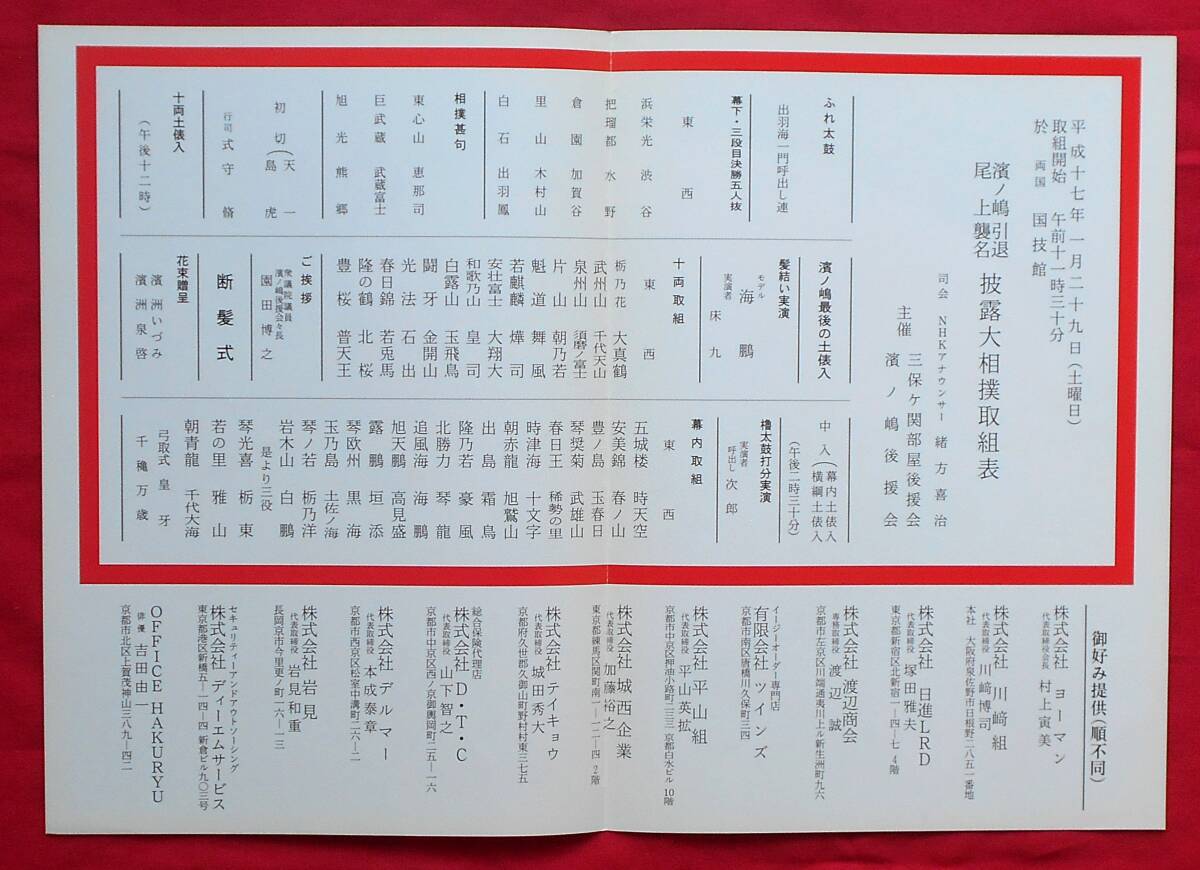 平成十七年一月二十九日(土曜日)
取組開始 午前十一時三十分
於 両国 国技館
濱ノ嶋引退
尾上襲名
披露大相撲取組表
司会 NHKアナウンサー 緒方喜治
主催 三保ケ関部屋後援会
濱ノ嶋後援会
ふれ太鼓
出羽海一門呼出し連
幕下・三段目決勝五人抜
東 西
浜栄光 渋谷
把瑠都 水野
倉園 加賀谷
里山 木村山
白石 出羽鳳
相撲甚句
東心山 恵那司
巨武蔵 武蔵富士
旭光 熊郷
初切(天一
島虎
行司 式守 脩
十両土俵入
(午後十二時)
濱ノ嶋最後の土俵入
髪結い実演
モデル 海鵬
実演者 床九
十両取組
東 西
栃乃花 大真鶴
武州山 千代天山
泉州山 須磨ノ富士
片山 朝乃若
魁道 舞風
若麒麟 燁司
安壮富士 大翔大
和歌乃山 皇司
白露山 玉飛鳥
闘牙 金開山
光法 石出
春日錦 若兎馬
隆の鶴 北桜
豊桜 普天王
ご挨拶
衆議院議員
濱ノ嶋後援会々長
園田博之
断髪式
花束贈呈
濱洲いづみ
濱洲泉啓
中入(幕内土俵入
横綱土俵入
(午後二時三十分)
櫓太鼓打分実演
実演者
呼出し 次郎
幕内取組
東 西
五城楼 時天空
安美錦 春ノ山
豊ノ島 玉春日
琴奨菊 武雄山
春日王 稀勢の里
時津海 十文字
朝赤龍 旭鷲山
出島 霜鳥
隆乃若 豪風
北勝力 琴龍
追風海 海鵬
旭天鵬 高見盛
露鵬 垣添
琴欧州 黒海
玉乃島 土佐ノ海
琴ノ若 栃乃洋
岩木山 白鵬
是より三役
琴光喜 栃東
若の里 雅山
朝青龍 千代大海
弓取式 皇牙
千穐万歳
御好み提供(順不同)
株式会社 ヨーマン
代表取締役会長 村上寅美
株式会社 川﨑組
代表取締役 川﨑博司
本社 大阪府泉佐野市日根野二八五一番地
株式会社 日進LRD
代表取締役 塚田雅夫
東京都新宿区北新宿一-四-七 4階
株式会社 渡辺商会
専務取締役 渡辺誠
京都市左京区川端通夷川上ル新生洲町九六
イージーオーダー専門店
有限会社 ツインズ
京都市南区唐橋川久保町三四
株式会社 平山組
代表取締役 平山英拡
京都市中京区押油小路町二三三 京都白水ビル10階
株式会社 城西企業
代表取締役 加藤裕之
東京都練馬区関町南一-一二-四 2階
株式会社 テイキョウ
代表取締役 城田秀大
京都府久世郡久御山町野村村東三七五
総合保険代理店
株式会社 D・T・C
代表取締役 山下智之
京都市中京区西ノ京御輿岡町二五-一六
株式会社 デルマー
代表取締役 本成泰章
京都市西京区松室中溝町二六-二
株式会社 岩見
代表取締役 岩見和重
長岡京市今里更ノ町一六-一三
セキュリティーアンドアウトソーシング
株式会社 ディーエムサービス
東京都港区新橋五-一四-四 新倉ビル九〇三号
OFFICE HAKURYU
俳優 吉田由一
京都市北区上賀茂神山三八九-四二